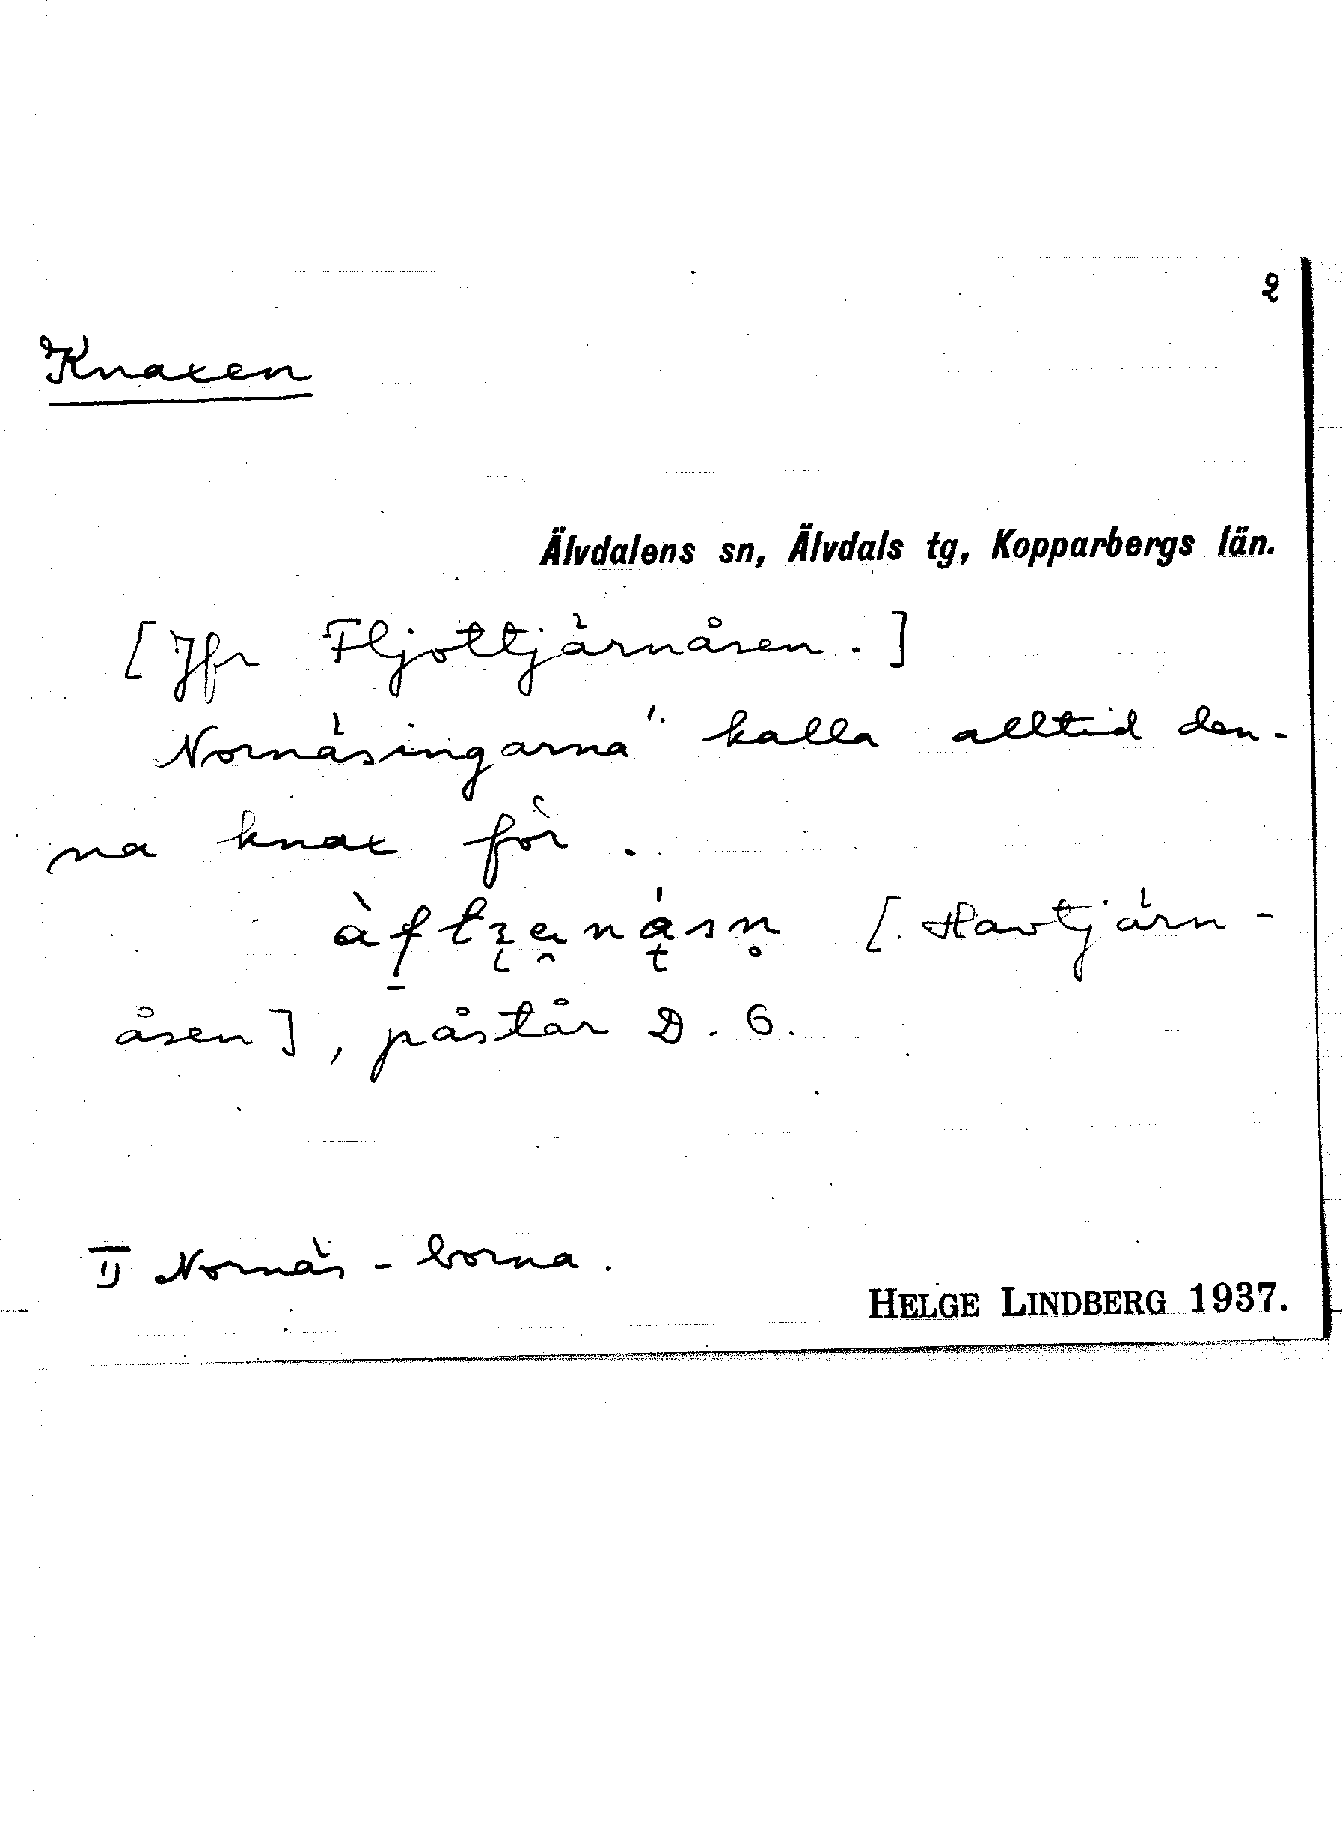 2
Knaxen
Älvdalens sn, Älvdals tg, Kopparbergs län.
[Jfr Fljottjärnåsen.]
Nornäsingarna" kalla alltid den-
na knax för
[Havtjärn-
åsen], påstår D. G.
II Nornäs-borna.
HELGE LINDBERG 1937.